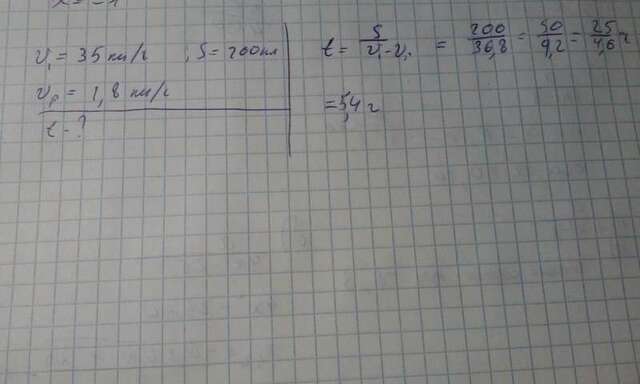 v₁ = 35 км/г , S = 200 км
vₚ = 1,8 км/г
t - ?
t = S/(v₁ - v.) = 200/36,8 = 50/9,2 = 25/4,6 г
= 5,4 г